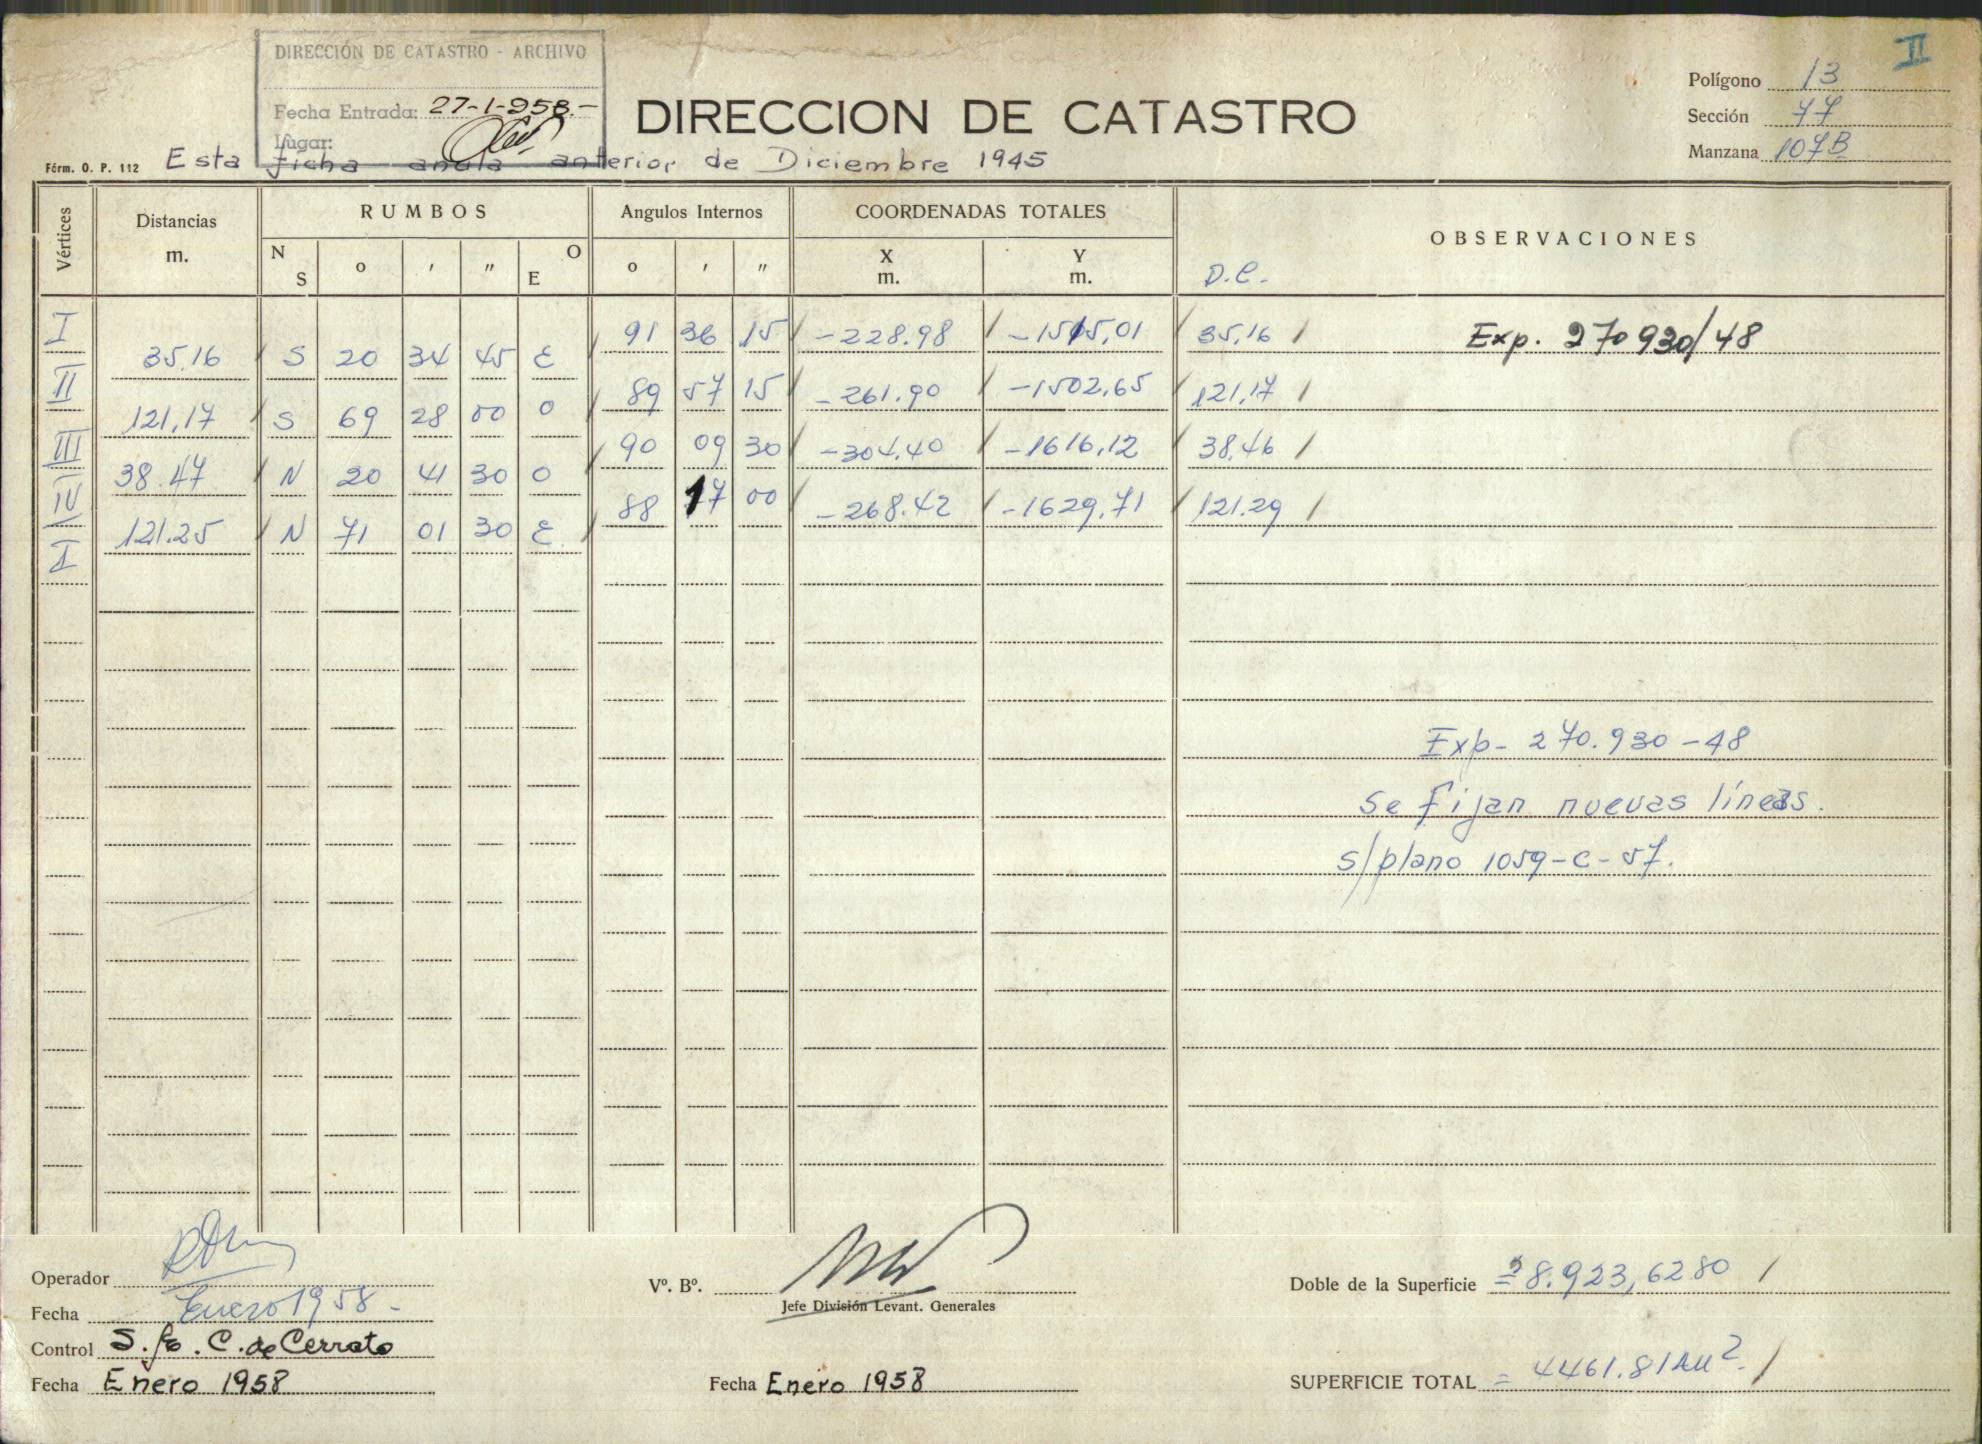 II
DIRECCIÓN DE CATASTRO - ARCHIVO
Fecha Entrada: 27-1-958.-
Lugar:
DIRECCION DE CATASTRO
Polígono 13
Sección 77
Manzana 107B
Fórm. O. P. 112
Esta ficha anula anterior de Diciembre 1945
Vértices Distancias m. RUMBOS Angulos Internos COORDENADAS TOTALES OBSERVACIONES
N S o ' " O E o ' " X m. Y m. D.C.
I 91 36 15 -228.98 -1515,01 35,16 Exp. 270930/48
35.16 S 20 34 45 E
II 89 57 15 -261.90 -1502,65 121,17
121,17 S 69 28 00 O
III 90 09 30 -304.40 -1616,12 38,46
38.47 N 20 41 30 O
IV 88 17 00 -268.42 -1629,71 121.29
121.25 N 71 01 30 E
I
Exp- 270.930-48
Se fijan nuevas líneas.
s/plano 1059-C-57.
Operador
Fecha Enero 1958-
Control C. de Cerrato
Fecha Enero 1958
Vº. Bº.
Jefe División Levant. Generales
Fecha Enero 1958
Doble de la Superficie = 8.923,6280
SUPERFICIE TOTAL = 4461.81 m2.